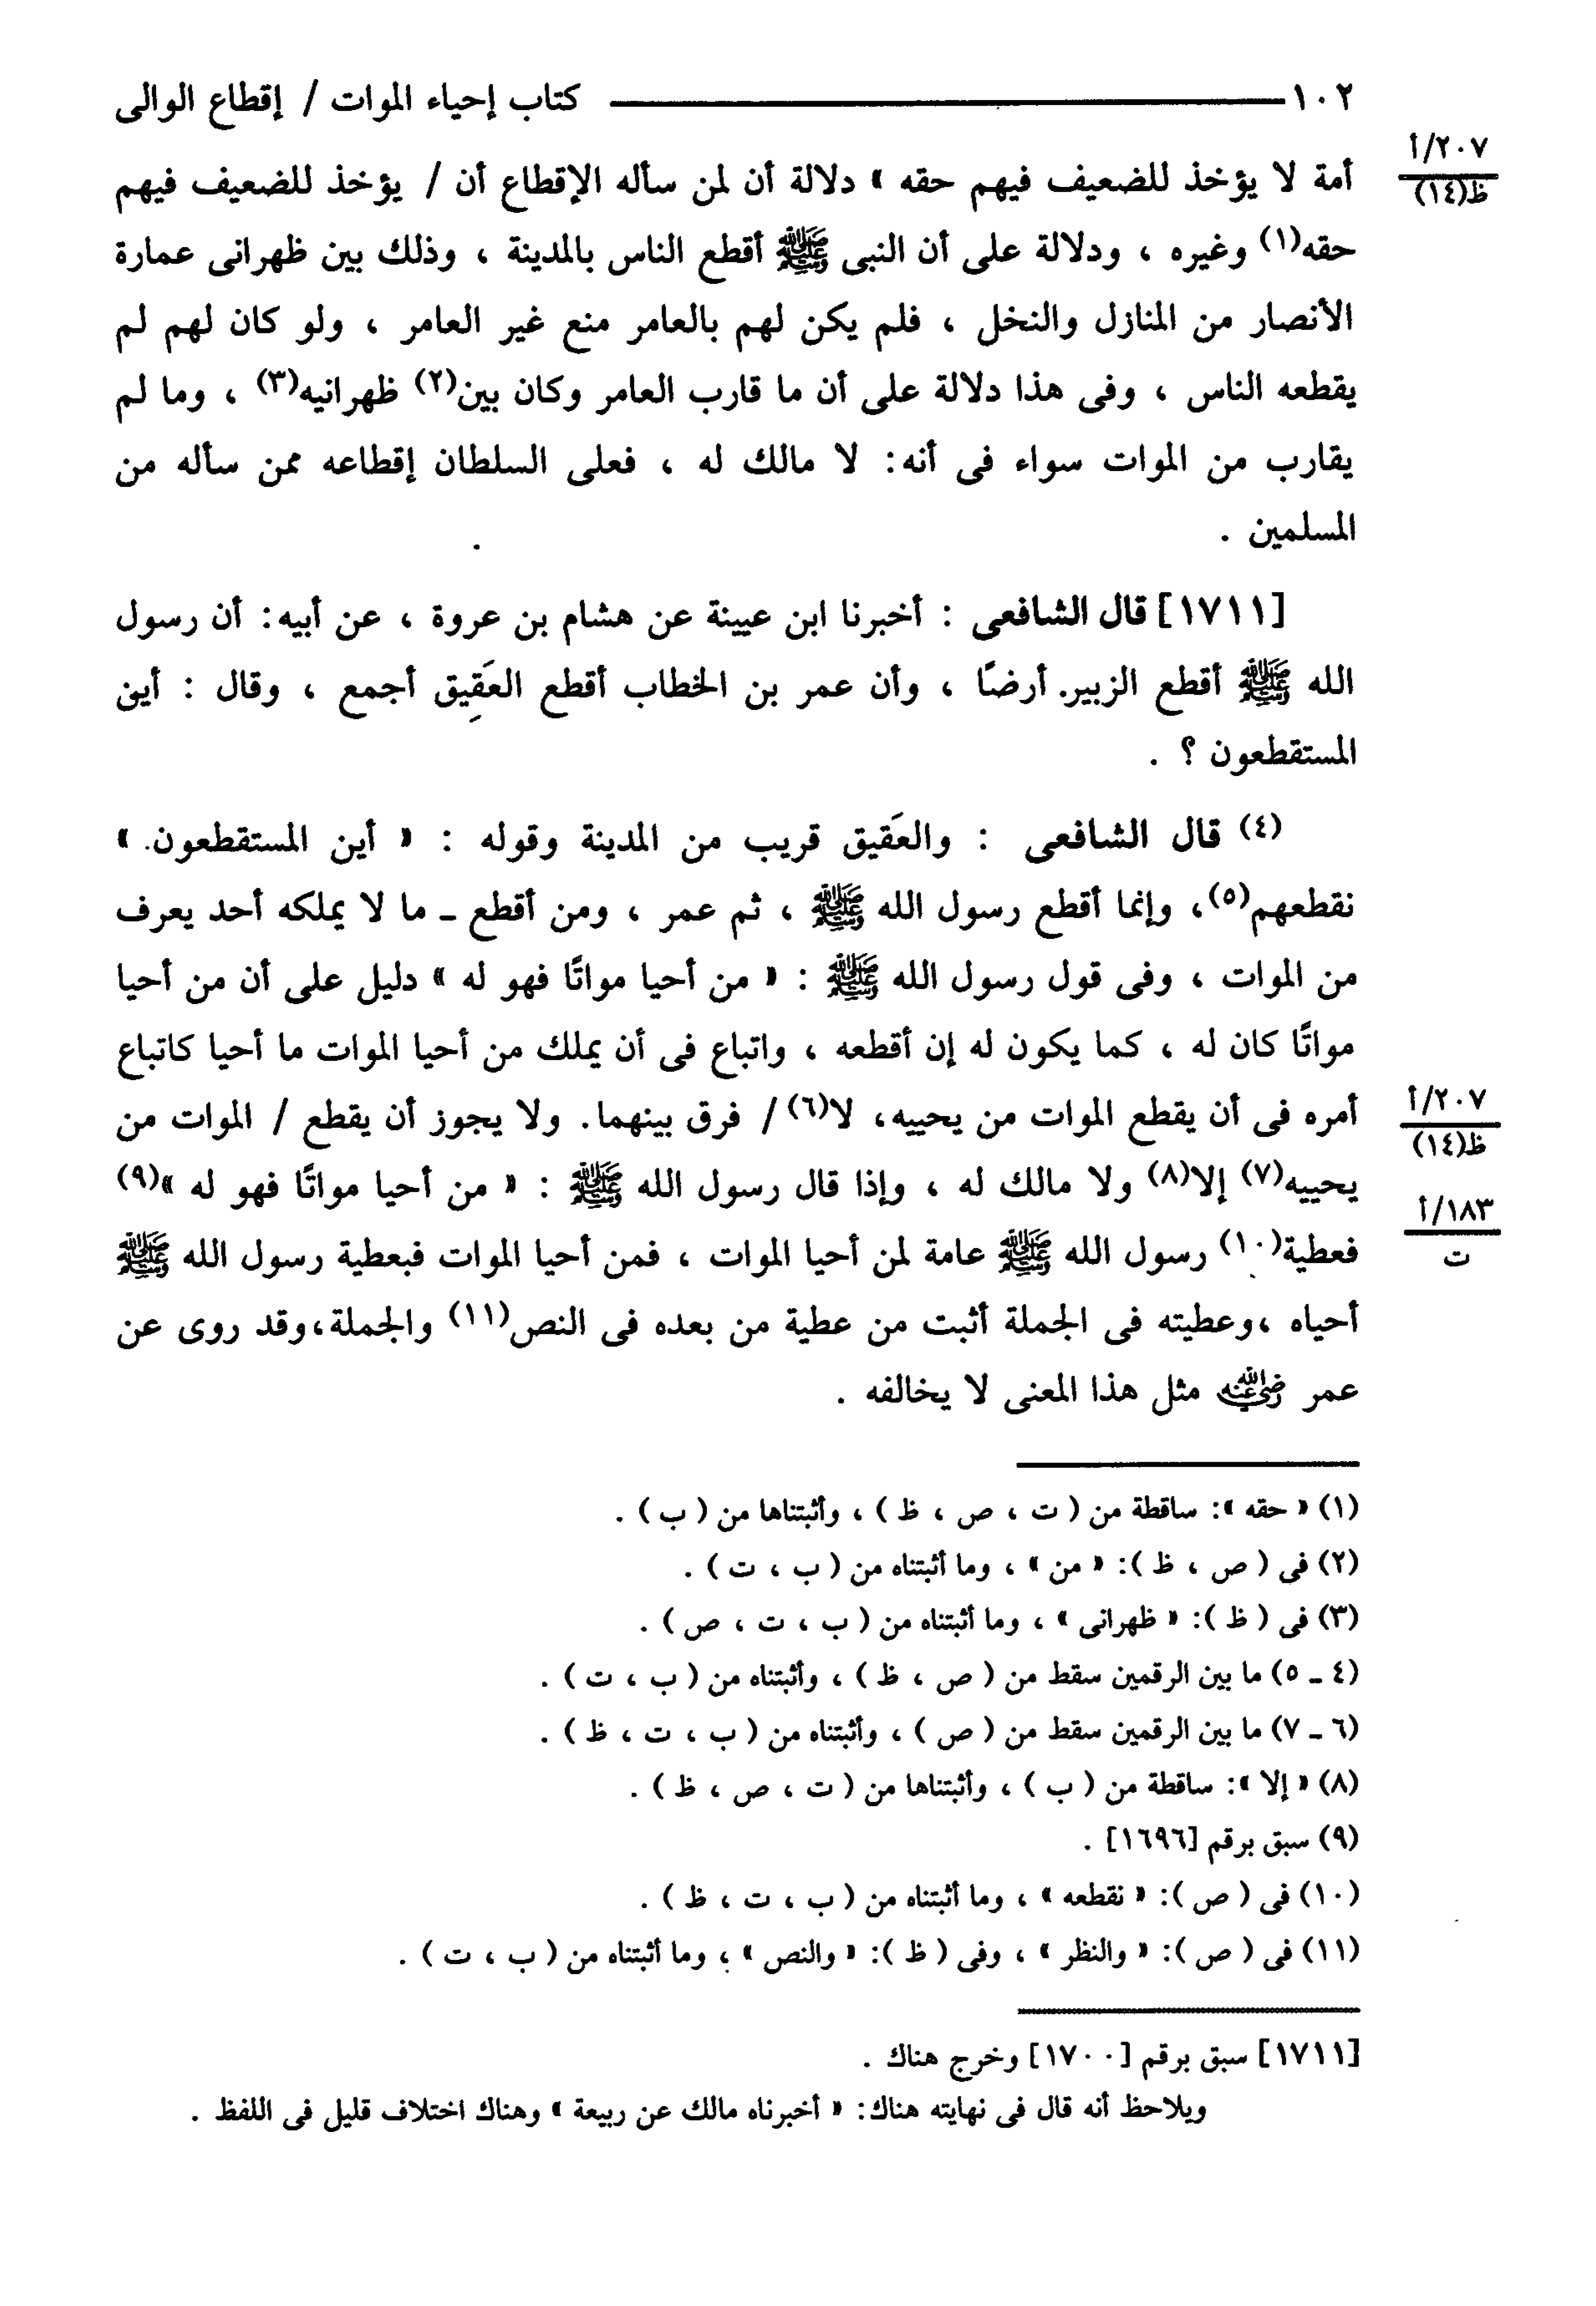 ١٠٢ كتاب إحياء الموات / إقطاع الوالى
٢٠٧/أ
ظ(١٤)
أمة لا يؤخذ للضعيف فيهم حقه » دلالة أن لمن سأله الإقطاع أن / يؤخذ للضعيف فيهم
حقه(١) وغيره ، ودلالة على أن النبى ﷺ أقطع الناس بالمدينة ، وذلك بين ظهرانى عمارة
الأنصار من المنازل والنخل ، فلم يكن لهم بالعامر منع غير العامر ، ولو كان لهم لم
يقطعه الناس ، وفى هذا دلالة على أن ما قارب العامر وكان بين(٢) ظهرانيه(٣) ، وما لم
يقارب من الموات سواء فى أنه: لا مالك له ، فعلى السلطان إقطاعه ممن سأله من
المسلمين .
[١٧١١] قال الشافعى : أخبرنا ابن عيينة عن هشام بن عروة ، عن أبيه: أن رسول
الله ﷺ أقطع الزبير. أرضًا ، وأن عمر بن الخطاب أقطع العَقِيق أجمع ، وقال : أين
المستقطعون ؟ .
(٤) قال الشافعى : والعَقيق قريب من المدينة وقوله : « أين المستقطعون. »
نقطعهم(٥)، وإنما أقطع رسول الله ﷺ ، ثم عمر ، ومن أقطع ـ ما لا يملكه أحد يعرف
من الموات ، وفى قول رسول الله ﷺ : « من أحيا مواتًا فهو له » دليل على أن من أحيا
مواتًا كان له ، كما يكون له إن أقطعه ، واتباع فى أن يملك من أحيا الموات ما أحيا كاتباع
أمره فى أن يقطع الموات من يحييه، لا(٦) / فرق بينهما. ولا يجوز أن يقطع / الموات من
٢٠٧/أ
ظ(١٤)
يحييه(٧) إلا(٨) ولا مالك له ، وإذا قال رسول الله ﷺ : « من أحيا مواتًا فهو له »(٩)
١٨٣/أ
ت
فعطية(١٠) رسول الله ﷺ عامة لمن أحيا الموات ، فمن أحيا الموات فبعطية رسول الله ﷺ
أحياه ،وعطيته فى الجملة أثبت من عطية من بعده فى النص(١١) والجملة،وقد روى عن
عمر رضي الله عنه مثل هذا المعنى لا يخالفه .
(١) « حقه »: ساقطة من ( ت ، ص ، ظ ) ، وأثبتناها من ( ب ) .
(٢) فى ( ص ، ظ ): « من » ، وما أثبتناه من ( ب ، ت ) .
(٣) فى ( ظ ): « ظهرانى » ، وما أثبتناه من ( ب ، ت ، ص ) .
(٤ ـ ٥) ما بين الرقمين سقط من ( ص ، ظ ) ، وأثبتناه من ( ب ، ت ) .
(٦ ـ ٧) ما بين الرقمين سقط من ( ص ) ، وأثبتناه من ( ب ، ت ، ظ ) .
(٨) « إلا »: ساقطة من ( ب ) ، وأثبتناها من ( ت ، ص ، ظ ) .
(٩) سبق برقم [١٦٩٦] .
(١٠) فى ( ص ): « نقطعه » ، وما أثبتناه من ( ب ، ت ، ظ ) .
(١١) فى ( ص ): « والنظر » ، وفى ( ظ ): « والنص » ، وما أثبتناه من ( ب ، ت ) .
[١٧١١] سبق برقم [١٧٠٠] وخرج هناك .
ويلاحظ أنه قال فى نهايته هناك: « أخبرناه مالك عن ربيعة » وهناك اختلاف قليل فى اللفظ .